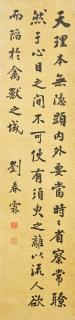 天理本無隱顯內外要當時時省察常瞭
然于心目之間不可使有須臾之離以流人欲
而陷於禽獸之域
劉春霖